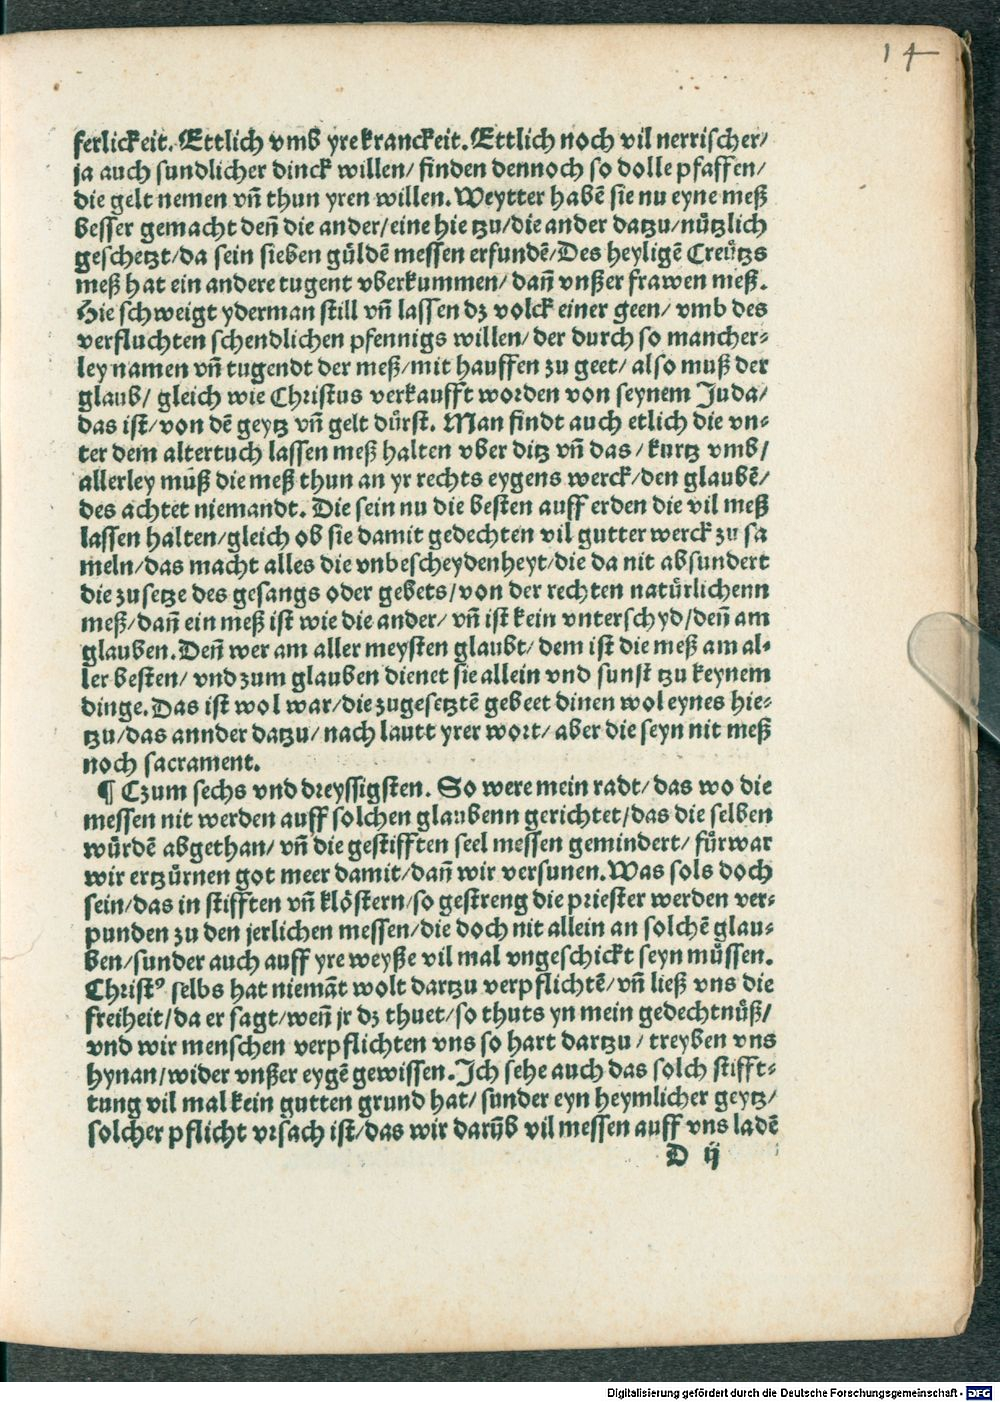 14
ferlickeit. Ettlich vmb yre kranckeit. Ettlich noch vil nerrischer/
ja auch sundlicher dinck willen/ finden dennoch so dolle pfaffen/
die gelt nemen vn̄ thun yren willen. Weytter habē sie nu eyne meß
besser gemacht den̄ die ander/ eine hie tzu/ die ander datzu/ nuͤtzlich
geschetzt/ da sein sieben guͤldē messen erfundē/ Des heyligē Creuͤtzs
meß hat ein andere tugent vberkummen/ dan̄ vnßer frawen meß.
Hie schweigt yderman still vn̄ lassen dz volck einer geen/ vmb des
verfluchten schendlichen pfennigs willen/ der durch so mancher⸗
ley namen vn̄ tugendt der meß/ mit hauffen zu geet/ also muß der
glaub/ gleich wie Christus verkaufft worden von seynem Juda/
das ist/ von dē geytz vn̄ gelt duͤrst. Man findt auch etlich die vn⸗
ter dem altertuch lassen meß halten vber ditz vn̄ das/ kurtz vmb/
allerley muͤß die meß thun an yr rechts eygens werck/ den glaubē/
des achtet niemandt. Die sein nu die besten auff erden die vil meß
lassen halten/ gleich ob sie damit gedechten vil gutter werck zu sa
meln/ das macht alles die vnbescheydenheyt/ die da nit absundert
die zusetze des gesangs oder gebets/ von der rechten natuͤrlichenn
meß/ dan̄ ein meß ist wie die ander/ vn̄ ist kein vnterschyd/ den̄ am
glauben. Den̄ wer am aller meysten glaubt/ dem ist die meß am al⸗
ler besten/ vnd zum glauben dienet sie allein vnd sunst tzu keynem
dinge. Das ist wol war/ die zugesetztē gebeet dinen wol eynes hie⸗
tzu/ das annder datzu/ nach lautt yrer wort/ aber die seyn nit meß
noch sacrament.
¶ Czum sechs vnd dreyssigsten. So were mein radt/ das wo die
messen nit werden auff solchen glaubenn gerichtet/ das die selben
wuͤrdē abgethan/ vn̄ die gestifften seel messen gemindert/ fuͤrwar
wir ertzuͤrnen got meer damit/ dan̄ wir versunen. Was sols doch
sein/ das in stifften vn̄ kloͤstern/ so gestreng die priester werden ver⸗
punden zu den jerlichen messen/ die doch nit allein an solchē glau⸗
ben/ sunder auch auff yre weyße vil mal vngeschickt seyn muͤssen.
Christꝰ selbs hat niemāt wolt dartzu verpflichtē/ vn̄ ließ vns die
freiheit/ da er sagt/ wen̄ jr dz thuet/ so thuts yn mein gedechtnuͤß/
vnd wir menschen verpflichten vns so hart dartzu/ treyben vns
hynan/ wider vnßer eygē gewissen. Ich sehe auch das solch stifft⸗
tung vil mal kein gutten grund hat/ sunder eyn heymlicher geytz/
solcher pflicht vrsach ist/ das wir daruͤb vil messen auff vns ladē
D ij
Digitalisierung gefördert durch die Deutsche Forschungsgemeinschaft - DFG